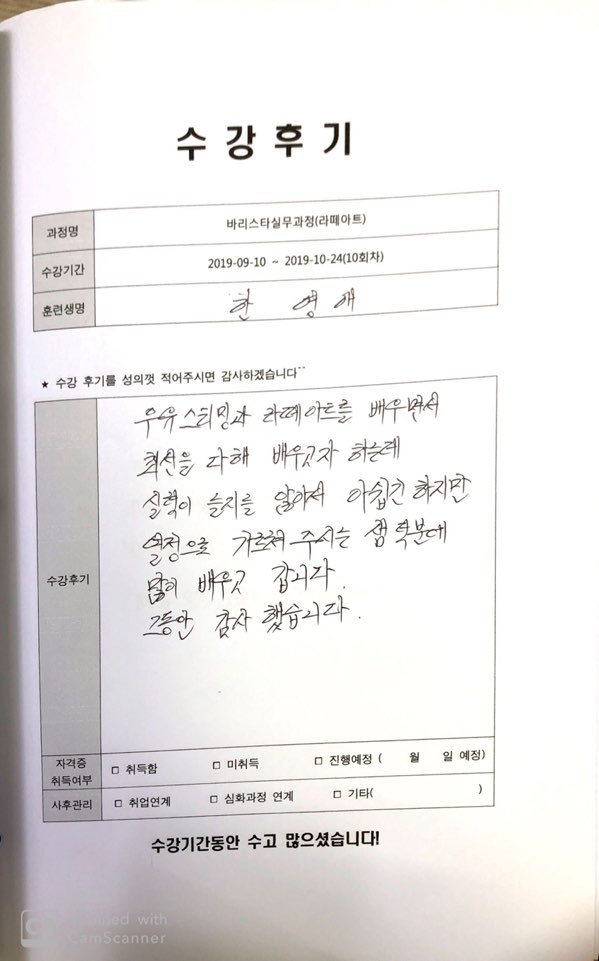 수강후기
과정명 바리스타실무과정(라떼아트)
수강기간 2019-09-10 ~ 2019-10-24(10회차)
훈련생명 한 영 애
★ 수강 후기를 성의껏 적어주시면 감사하겠습니다^^
우유스티밍과 라떼아트를 배우면서
최선을 다해 배우고자 하는데
실력이 늘지를 않아서 아쉽긴 하지만
열정으로 가르쳐 주시는 샘 덕분에
수강후기
많이 배우고 갑니다.
그동안 감사 했습니다.
자격증
취득여부
□ 취득함 □ 미취득 □ 진행예정 ( 월 일 예정)
사후관리 □ 취업연계 □ 심화과정 연계 □ 기타( )
수강기간동안 수고 많으셨습니다!
Scanned with
CamScanner